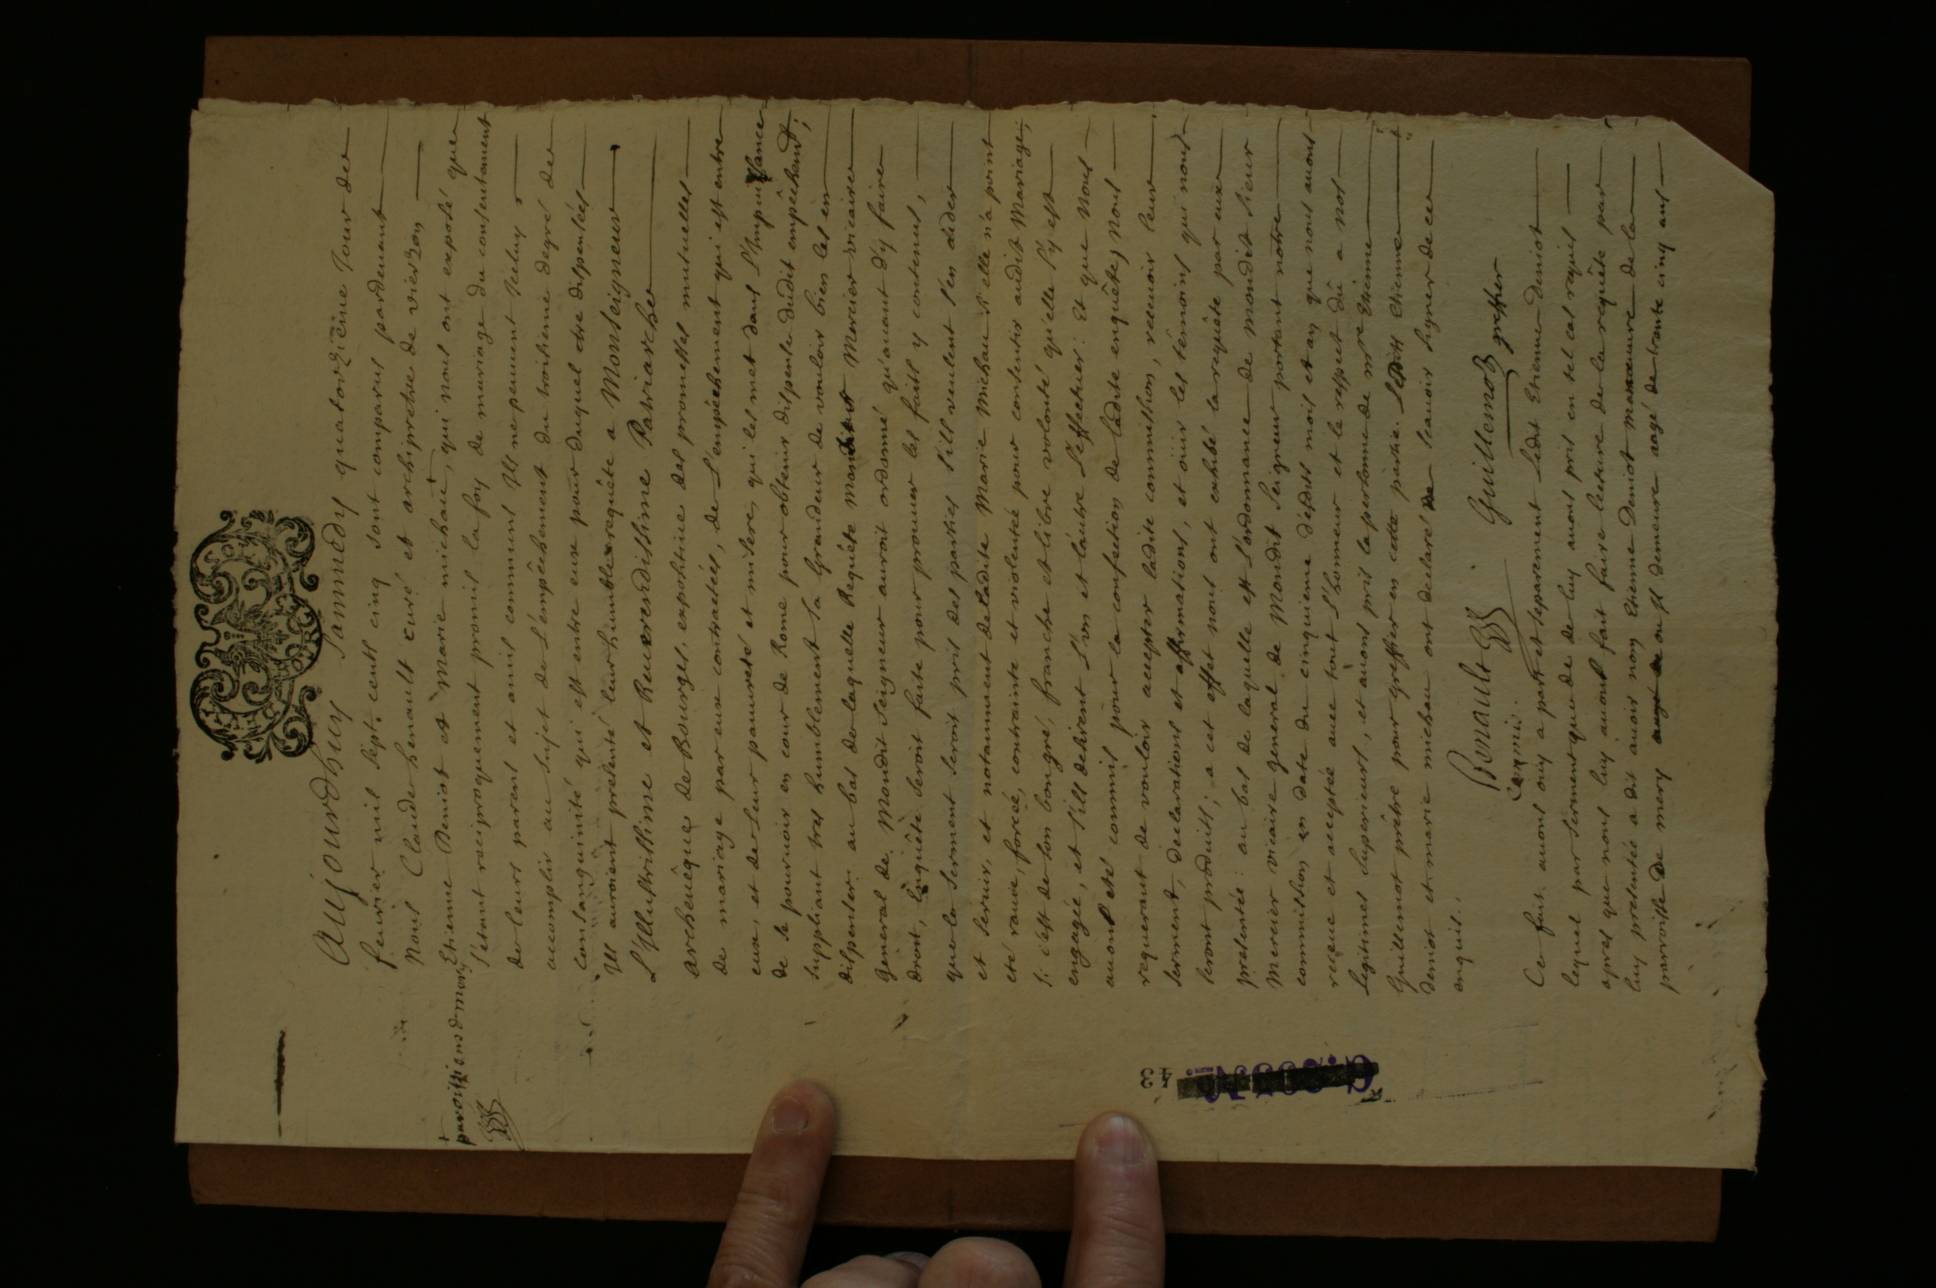 Aujourdhuy Sammedy quatorzième Jour de
feurier mil sept cents cinq sont comparus pardeuant
Nous Claude henault curé et archiprêtre de vierzon
Etienne Deniot et Marie michau, qui nous ont exposé que
+ paroissiens de mery
s'étant reciproquement promis la foy de mariage du consentement
de leurs parens et amis communs Ils ne peuuent Iceluy
accomplir au sujet de L'empêchement du troisieme degré de
Consanguinité qui est entre eux pour duquel etre dispensées
Ils auroient presenté leur humble requête a Monseigneur
L'Illustrissime et Reuerendissime Patriarche
Archeuêque de Bourges, expositiue des promesses mutuelles
de mariage par eux contractées, de L'empéchement qui est entre
eux, et de leur pauureté et misere, qui les met dans L'Impuissance
de se pouruoir en cour de Rome pour obtenir dispense dudit empêchemt;
suppliant tres humblement sa Grandeur de vouloir bien les en
dispenser au bas de laquelle Requête Mercier vicaire
General de Mondit Seigneur auroit ordonné qu'auant dy faire
droit, Enquête seroit faite pour prouuer les faits y contenus,
que le serment seroit pris des parties s'ills veulent s'en aider
et seruir, et notamment de ladite Marie Michau si elle n'a point
eté rauie, forcée, contrainte et violentée pour consentir audit Mariage;
si c'est de son bongré, franche et libre volonté qu'elle s'y est
engagée, et s'ills desirent l'un et l'autre l'effectuer: Et que Nous
auons eté commis pour la confection de ladite enquête, Nous
requerant de vouloir accepter ladite commission, receuoir leur
serment, declarations et affirmations, et oüir les témoins qui nous
seront produits; a cet effet nous ont exhibé la requête par eux
presentée: au bas de laquelle est l'ordonnance de Mondit Sieur
Mercier vicaire general de Mondit Seigneur portant nôtre
commission en date du cinquieme desdits mois et an que nous auons
reçue et acceptée auec tout l'honneur et le respect dû a nos
Legitimes Superieurs, et auons pris la personne de mre Etienne
Guillemot prêtre pour greffier en cette partie. Etienne
Deniot et marie michau ont declaré ne sçauoir signer de ce
enquis.
Henault
Commis. Guillemot greffier
Ce fait auons ouy a part et separement Ledit Etienne Deniot
lequel par serment que de luy auons pris en tel cas requis
apres que nous luy auons fait faire lecture de la requête par
luy presentée a dit auoir nom Etienne Deniot manœuure de la
parroisse de mery ou il demeure aagé de trante cinq ans
43